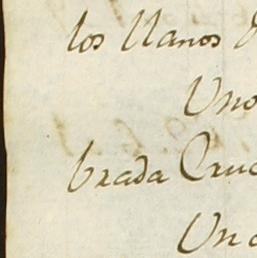 los llanos
Uno
brada Cruc
Un